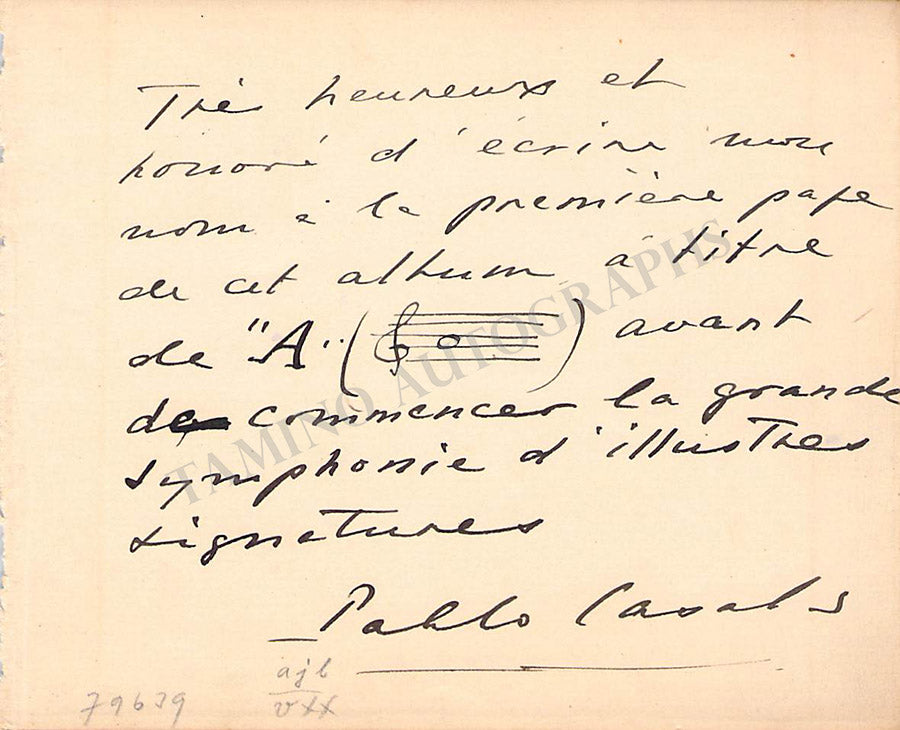 Très heureux et
honoré d'écrire mon
nom à la première page
de cet album à titre
de "A" ( ) avant
de commencer la grande
symphonie d'illustres
signatures
Pablo Casals
ajb
vxx
79639
TAMINO AUTOGRAPHS